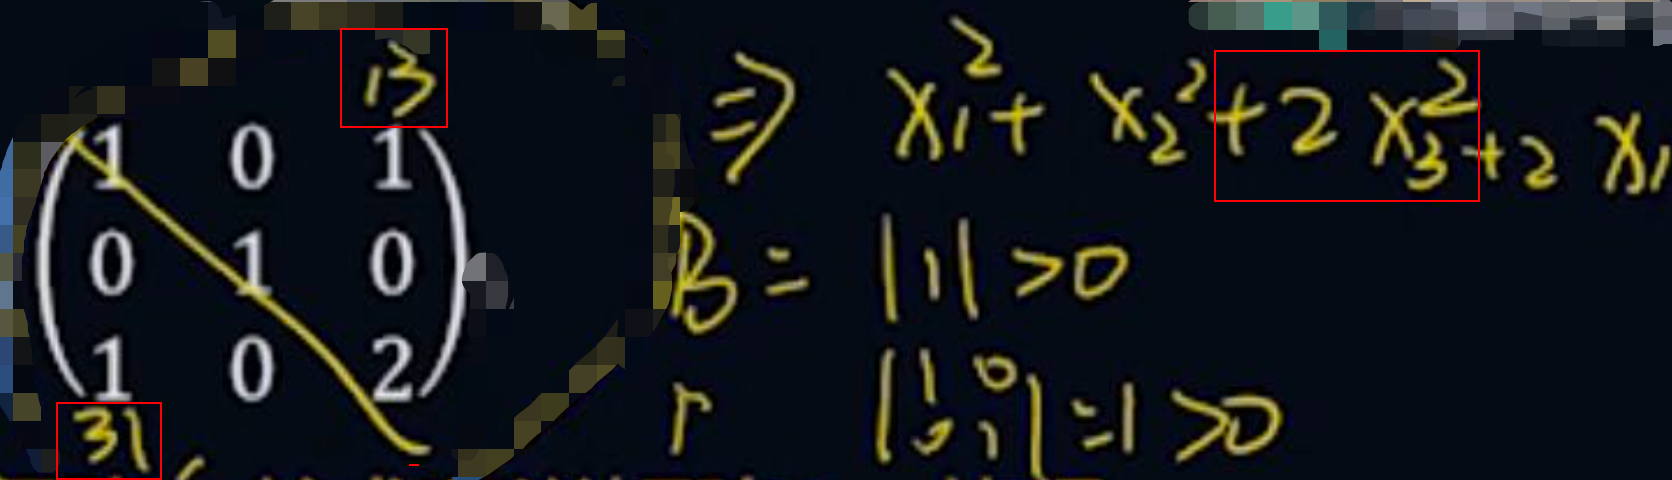 13
1 0 1
0 1 0
1 0 2
31
⇒ x₁² + x₂² + 2x₃² + 2x₁
B = |1| > 0
|1 0
0 1| = 1 > 0